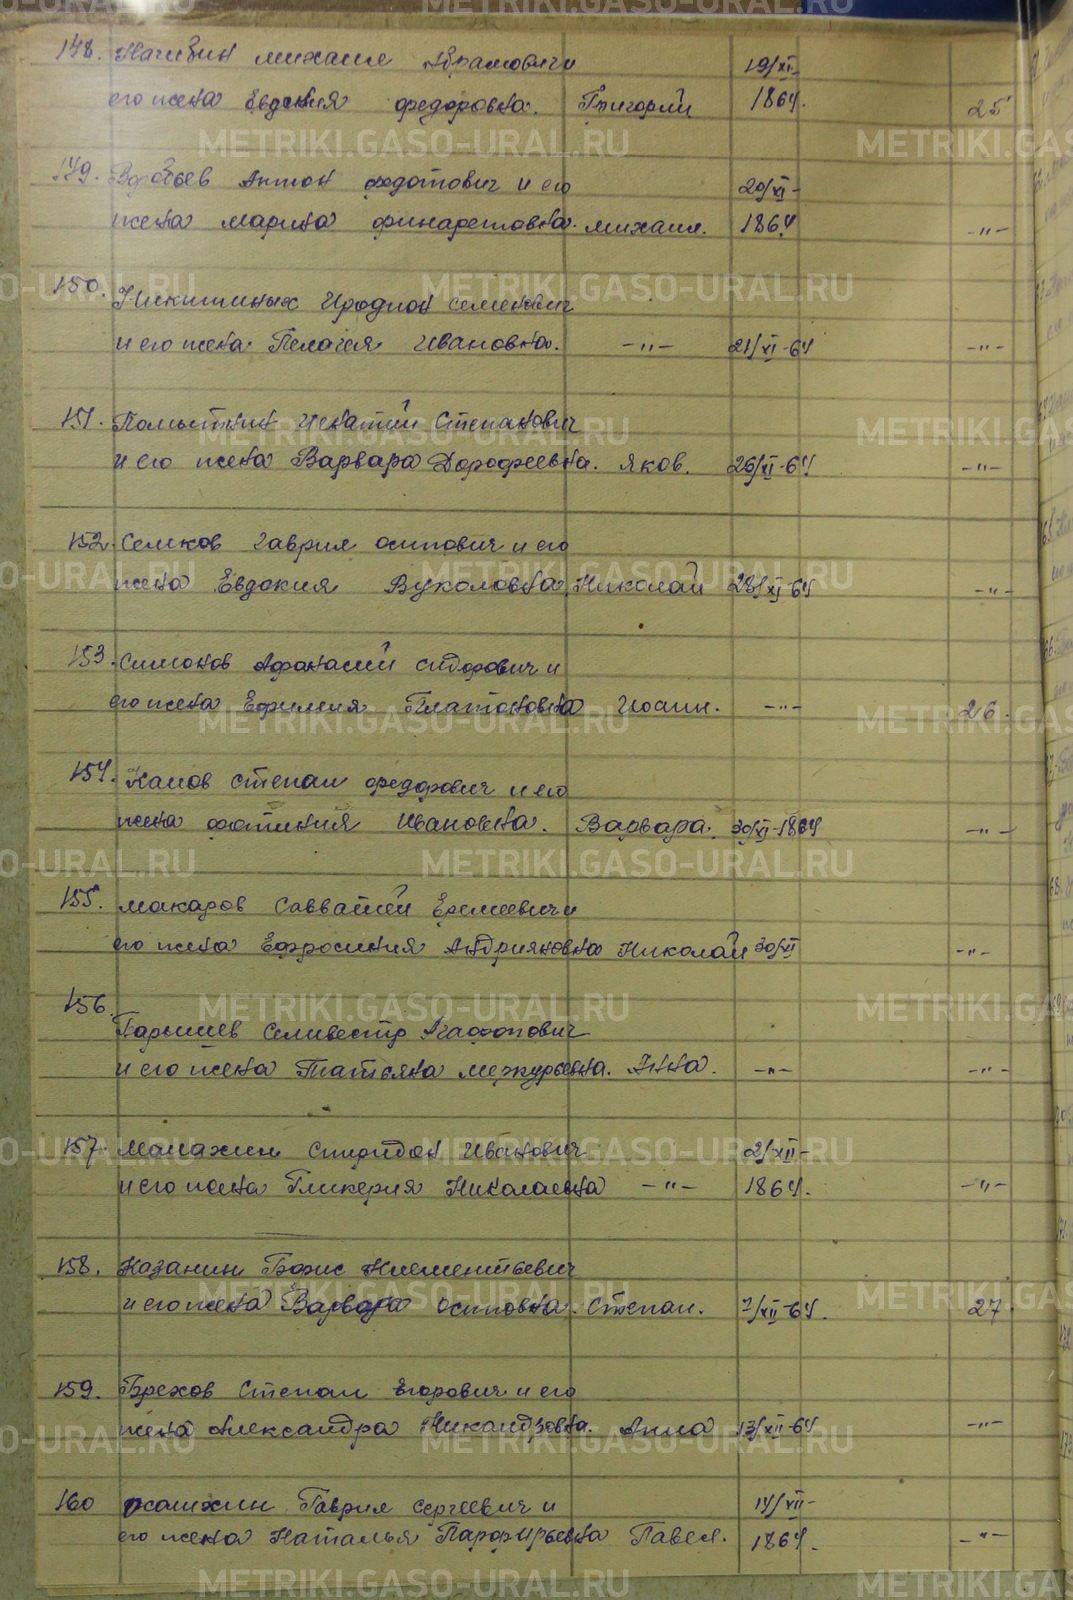 148. Качизин михаил Абрамович и 19/XI-
его жена Евдокия федоровна. Григорий 1864. 25
149. Воробьев Антон федотович и его 20/XI-
жена Марина финаретовна. михаил. 1864 -"-
150. Никитиных Иродион семенович
и его жена Пелагея Ивановна. -"- 21/XI-64 -"-
151. Степанович
и его жена Варвара Дорофеевна. Яков. 26/XI-64 -"-
152. Семков Гаврил осипович и его
жена Евдокия Вуколовна. Николай 28/XI-64 -"-
153. Симонов Афанасий сидорович и
его жена Ефимия Платоновна Иоанн. -"- 26.
154. степан федорович и его
жена фотиния Ивановна. Варвара. 30/XI-1864 -"-
155. макаров Савватий Еремеевич и
его жена Ефросиния Андрияновна Николай 30/XI -"-
156.
Паршев Селивестр Агафонович
и его жена Татьяна меркурьевна. Анна. -"- -"-
157. Малахин Спиридон Иванович 2/XII-
и его жена Гликерия Николаевна -"- 1864. -"-
158. Казанин Борис Клементьевич
и его жена Варвара осиповна. Степан. 7/XII-64. 27.
159. Брехов Степан Егорович и его
жена Александра Никандровна. Анна 13/XII-64 -"-
160 Гаврил Сергеевич и 14/XII-
его жена Наталья Парфирьевна Павел. 1864. -"-
METRIKI.GASO-URAL.RU